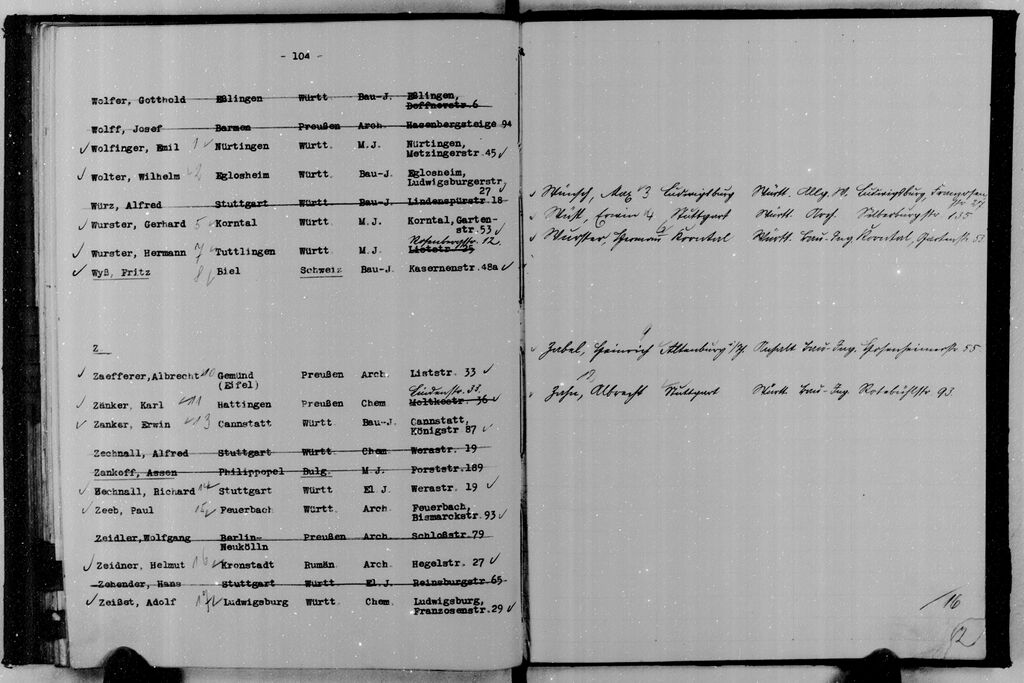 - 104 -
Wolfer, Gotthold Eßlingen Württ Bau-J. Eßlingen,
Wolff, Josef Barmen Preußen Arch. Hasenbergsteige 94
✓ Wolfinger, Emil 1 ✓ Nürtingen Württ. M.J. Nürtingen,
Metzingerstr.45 ✓
✓ Wolter, Wilhelm 2 Eglosheim Württ. Bau-J Eglosheim,
Ludwigsburgerstr
27 ✓
Würz, Alfred Stuttgart Württ Bau-J. Lindenspürstr.18
✓ Wurster, Gerhard 5 ✓ Korntal Württ. M.J. Korntal,Garten-
str.53 ✓
Rosenbergstr. 12.
✓ Wurster, Hermann 7 ✓ Tuttlingen Württ M.J. Liststr
✓ Wyß, Fritz 8 ✓ Biel Schweiz Bau-J. Kasernenstr.48a ✓
Z
✓ Zaefferer,Albrecht 10 Gemünd Preußen Arch. Liststr. 33 ✓
(Eifel)
Lindenstr. 33.
✓ Zänker, Karl ✓ 11 Hattingen Preußen Chem Moltkestr. 36 ✓
✓ Zanker, Erwin ✓ 13 Cannstatt Württ. Bau-J. Cannstatt,
Königstr 87 ✓
Zechnall, Alfred Stuttgart Württ. Chem. Werastr. 19
Zankoff, Assen Philippopel Bulg. M J. Forststr.189
✓ Zechnall, Richard 14 ✓ Stuttgart Württ El J. Werastr. 19 ✓
✓ Zeeb, Paul 15 ✓ Feuerbach Württ. Arch. Feuerbach,
Bismarckstr.93 ✓
Zeidler,Wolfgang Berlin- Preußen Arch Schloßstr.79
Neukölln
✓ Zeidner, Helmut 16 ✓ Kronstadt Rumän Arch. Hegelstr. 27 ✓
Zehender, Hans Stuttgart Württ El.J. Reinsburgstr 65
✓ Zeißet, Adolf 17 ✓ Ludwigsburg Württ Chem. Ludwigsburg,
Franzosenstr.29 ✓
✓ Wünsch, Max 3 Ludwigsburg Württ. Allg. W. Ludwigsburg, Franzosen
str 27
✓ Wüst, Erwin 4 Stuttgart Württ. Arch. Silberburgstr 135
✓ Wurster Hermann 6 Korntal Württ. Bau-Ing Korntal, Gartenstr. 53
9
✓ Zabel, Heinrich Altenburg Anhalt Bau-Ing. Hosenheimerstr 55
12
✓ Zahn, Albrecht Stuttgart Württ. Bau-Ing. Rotebühlstr 93.
16
12